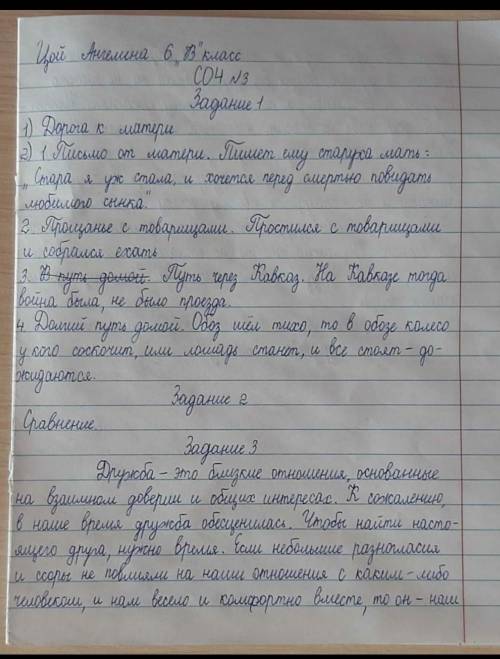 Цой Ангелина 6 „В" класс
СОЧ №3
Задание 1
1) Дорога к матери
2) 1. Письмо от матери. Пишет ему старуха мать:
„Стара я уж стала, и хочется перед смертью повидать
любимого сынка".
2. Прощанье с товарищами. Простился с товарищами
и собрался ехать
3. В путь домой. Путь через Кавказ. На Кавказе тогда
война была, не было проезда.
4. Долгий путь домой. Обоз шёл тихо, то в обозе колесо
у кого соскочит, или лошадь станет, и все стоят - до-
жидаются.
Задание 2
Сравнение
Задание 3
Дружба - это близкие отношения, основанные
на взаимном доверии и общих интересах. К сожалению,
в наше время дружба обесценилась. Чтобы найти насто-
ящего друга, нужно время. Если небольшие разногласия
и ссоры не повлияли на наши отношения с каким-либо
человеком, и нам весело и комфортно вместе, то он - наш